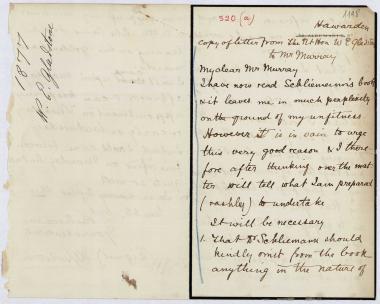 1877
W. E. Gladstone
520 (a)
1195
Hawarden
copy of letter from The Rt Hon W E Gladstone
to Mr Murray
My dear Mr Murray
I have now read Schliemann's book
& it leaves me in much perplexity
on the ground of my unfitness
However it is in vain to urge
this very good reason & I there
fore after thinking over the mat
ter will tell what I am prepared
(rashly) to undertake
It will be necessary
1. That Dr Schliemann should
kindly omit from the book
anything in the nature of